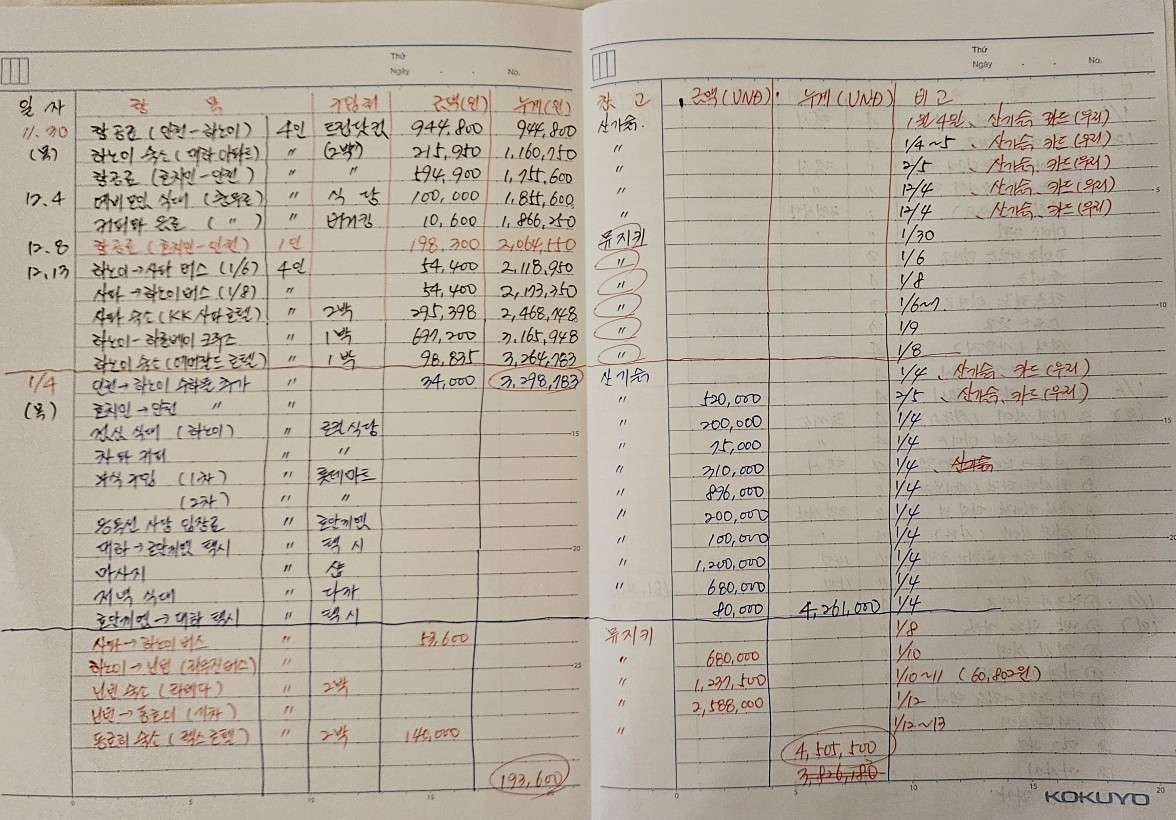 Thứ
Ngày . . No.
Thứ
Ngày . . No.
일 자 항 목 구입처 금액(원) 누계(원) 참 고 금액(VNĐ) 누계(VNĐ) 비 고
11.30 항공료 (인천-하노이) 4인 트립닷컴 944,800 944,800 산기슭 1월 4일, 산기슭 카드(우리)
(목) 하노이 숙소( 아파트) " (2박) 215,950 1,160,750 " 1/4~5, 산기슭 카드(우리)
항공료 (호치민-인천) " " 594,900 1,755,600 " 2/5, 산기슭 카드(우리)
12.4 예비모임 식대 (충무로) " 식 당 100,000 1,855,600 " 12/4, 산기슭 카드(우리)
커피와 음료 ( " ) " 버거킹 10,600 1,866,250 " 12/4, 산기슭 카드(우리)
12.8 항공료 (호치민-인천) 1인 198,300 2,064,550 뮤지키 1/30
12.13 하노이→사파 버스 (1/6) 4인 54,400 2,118,950 " 1/6
사파→하노이버스 (1/8) " 54,400 2,173,350 " 1/8
사파 숙소(KK사파호텔) " 2박 295,398 2,468,748 " 1/6~7
하노이-하롱베이 크루즈 " 1박 697,200 3,165,948 " 1/9
하노이 숙소(에메랄드 호텔) " 1박 98,835 3,264,783 " 1/8
1/4 인천→하노이 수하물 추가 " 34,000 3,298,783 산기슭 1/4, 산기슭 카드(우리)
(목) 호치민→인천 " " " 520,000 2/5, 산기슭, 카드(우리)
점심 식대 (하노이) " 로컬식당 " 200,000 1/4
커피 " " " 75,000 1/4
구입 (1차) " 롯데마트 " 310,000 1/4, 산기슭
(2차) " " " 896,000 1/4
응옥선 사당 입장료 " 호안끼엠 " 200,000 1/4
→호안끼엠 택시 " 택 시 " 100,000 1/4
마사지 " 샵 " 1,200,000 1/4
저녁 식대 " " 680,000 1/4
호안끼엠→ 택시 " 택시 80,000 4,261,000 1/4
사파→하노이 버스 " 53,600 뮤지키 1/8
하노이→닌빈 (리무진버스) " " 680,000 1/10
닌빈 숙소 " 2박 " 1,237,500 1/10~11 (60,802원)
닌빈→동호이 (기차) " " 2,588,000 1/12
동호이 숙소 (렉스호텔) " 2박 140,000 " 1/12~13
4,505,500
193,600 3,826,180
0 5 10 15 20
15 20 25
0 5 10 15 20
5 10 15 20
KOKUYO